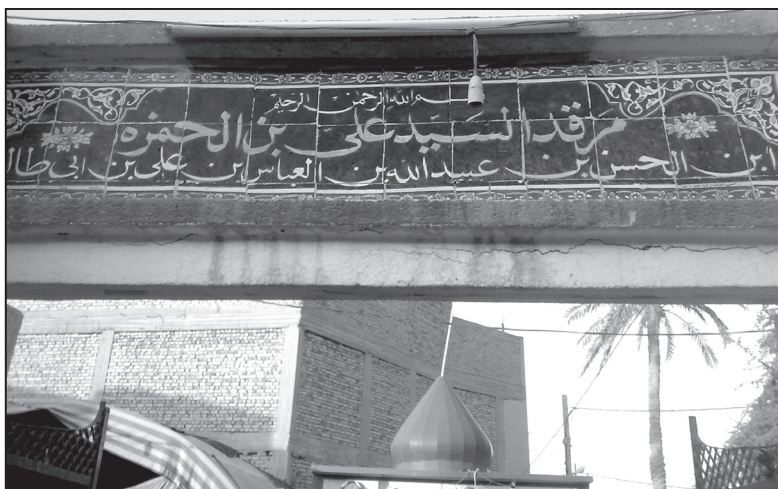 بسم الله الرحمن الرحيم
مرقد السيد علي بن الحمزه
ابن الحسن بن عبيد الله بن العباس بن علي بن ابي طال